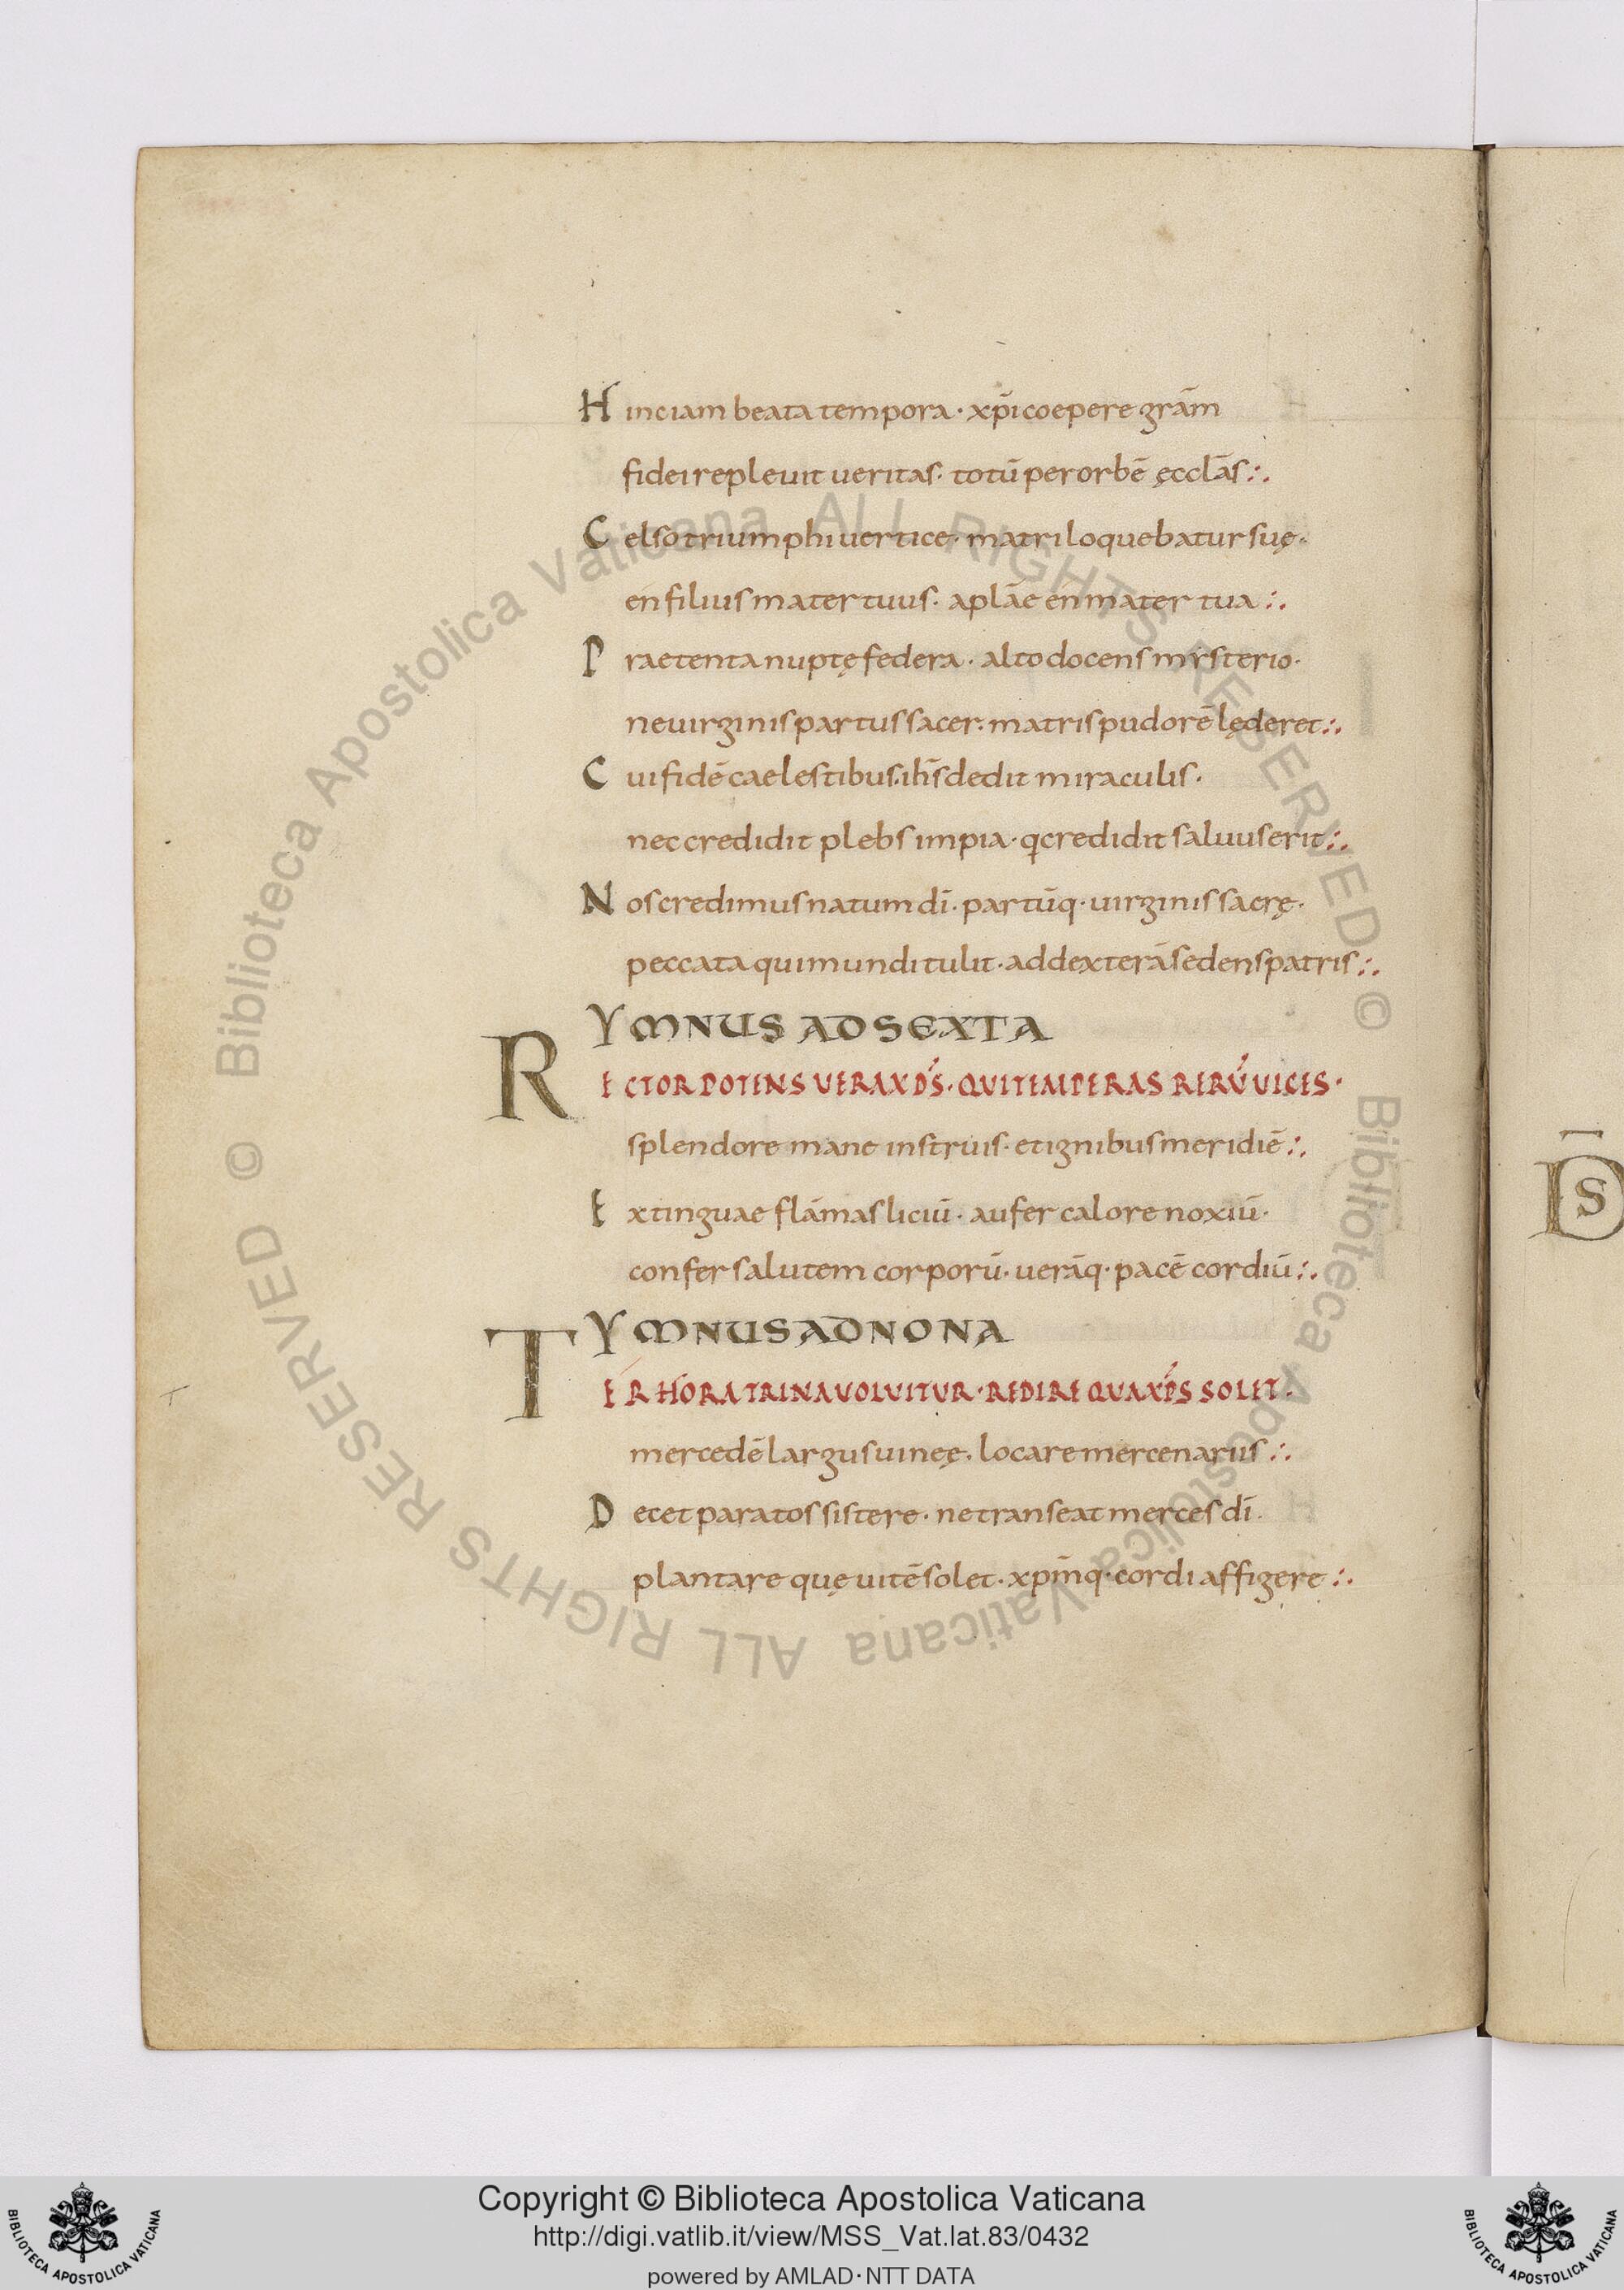 Hinc iam beata tempora · xp̄i coepere grām
fidei repleuit ueritas · totū per orbē ęcclās :·
Celso triumphi uertice · matri loquebatur suę ·
en filius mater tuus · aplāe en mater tua :·
Praetenta nuptę federa · alto docens mysterio ·
ne uirginis partus sacer · matris pudorē lęderet :·
Cui fidē caelestibus · ih̄s dedit miraculis ·
nec credidit plebs impia · q credidit saluus erit :·
Nos credimus natum dī · partūq · uirginis sacrę ·
peccata qui mundi tulit · ad dexterā sedens patris :·
YMNUS AD SEXTA
RECTOR POTENS VERAX DS̄ · QVI TEMPERAS RERV̄ VICES ·
splendore mane instruis · et ignibus meridiē :·
Extinguae flāmas liciū · aufer calore noxiū ·
confer salutem corporū · uerāq · pacē cordiū :·
YMNUS AD NONA
TER HORA TRINA VOLVITVR · REDIRE QVA XP̄S SOLET ·
mercedē largus uineę · locare mercenariis :·
Decet paratos sistere · ne transeat merces dī ·
plantare quę uitē solet · xpm̄q · cordi affigere :·
DS̄
© Biblioteca Apostolica Vaticana ALL RIGHTS RESERVED
© Biblioteca Apostolica Vaticana ALL RIGHTS RESERVED
Copyright © Biblioteca Apostolica Vaticana
http://digi.vatlib.it/view/MSS_Vat.lat.83/0432
powered by AMLAD · NTT DATA
BIBLIOTECA APOSTOLICA VATICANA
BIBLIOTECA APOSTOLICA VATICANA